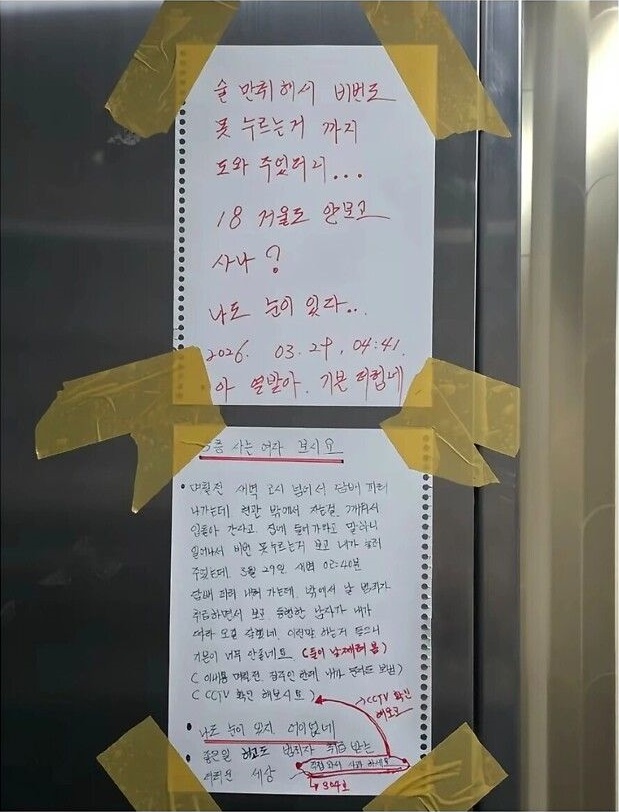 술 만취해서 비번도
못 누르는거 까지
도와 주었더니...
18 거울도 안보고
사나?
나도 눈이 있다..
2026. 03. 29, 04:41.
아 열받아. 기본 더럽네
층 사는 여자 보시요
몇일전 새벽 2시 넘어서 담배 피러
나가는데 현관 밖에서 자는걸 깨워서
간사고. 집에 들어가라고 말하니
일어나서 비번 못누르는거 보고 내가 눌러
주었는데. 3월 29일 새벽 02:40분
담배 피러 내려 가는데. 밖에서 날 범죄자
취급하면서 보고. 동행한 남자가 내가
여자 모를 이런말 하는거 들으니
기분이 너무 안좋네요. (둘이 날 째려 봄)
(이내용 몇일전 집주인한테 내가 문여는 방법)
(CCTV 확인 해보시요) CCTV 확인
해보고
나도 눈이 있지 어이없네
좋은일 하고도 범죄자 취급 받는
더러운 세상 직접 와서 사과 하세요
304호